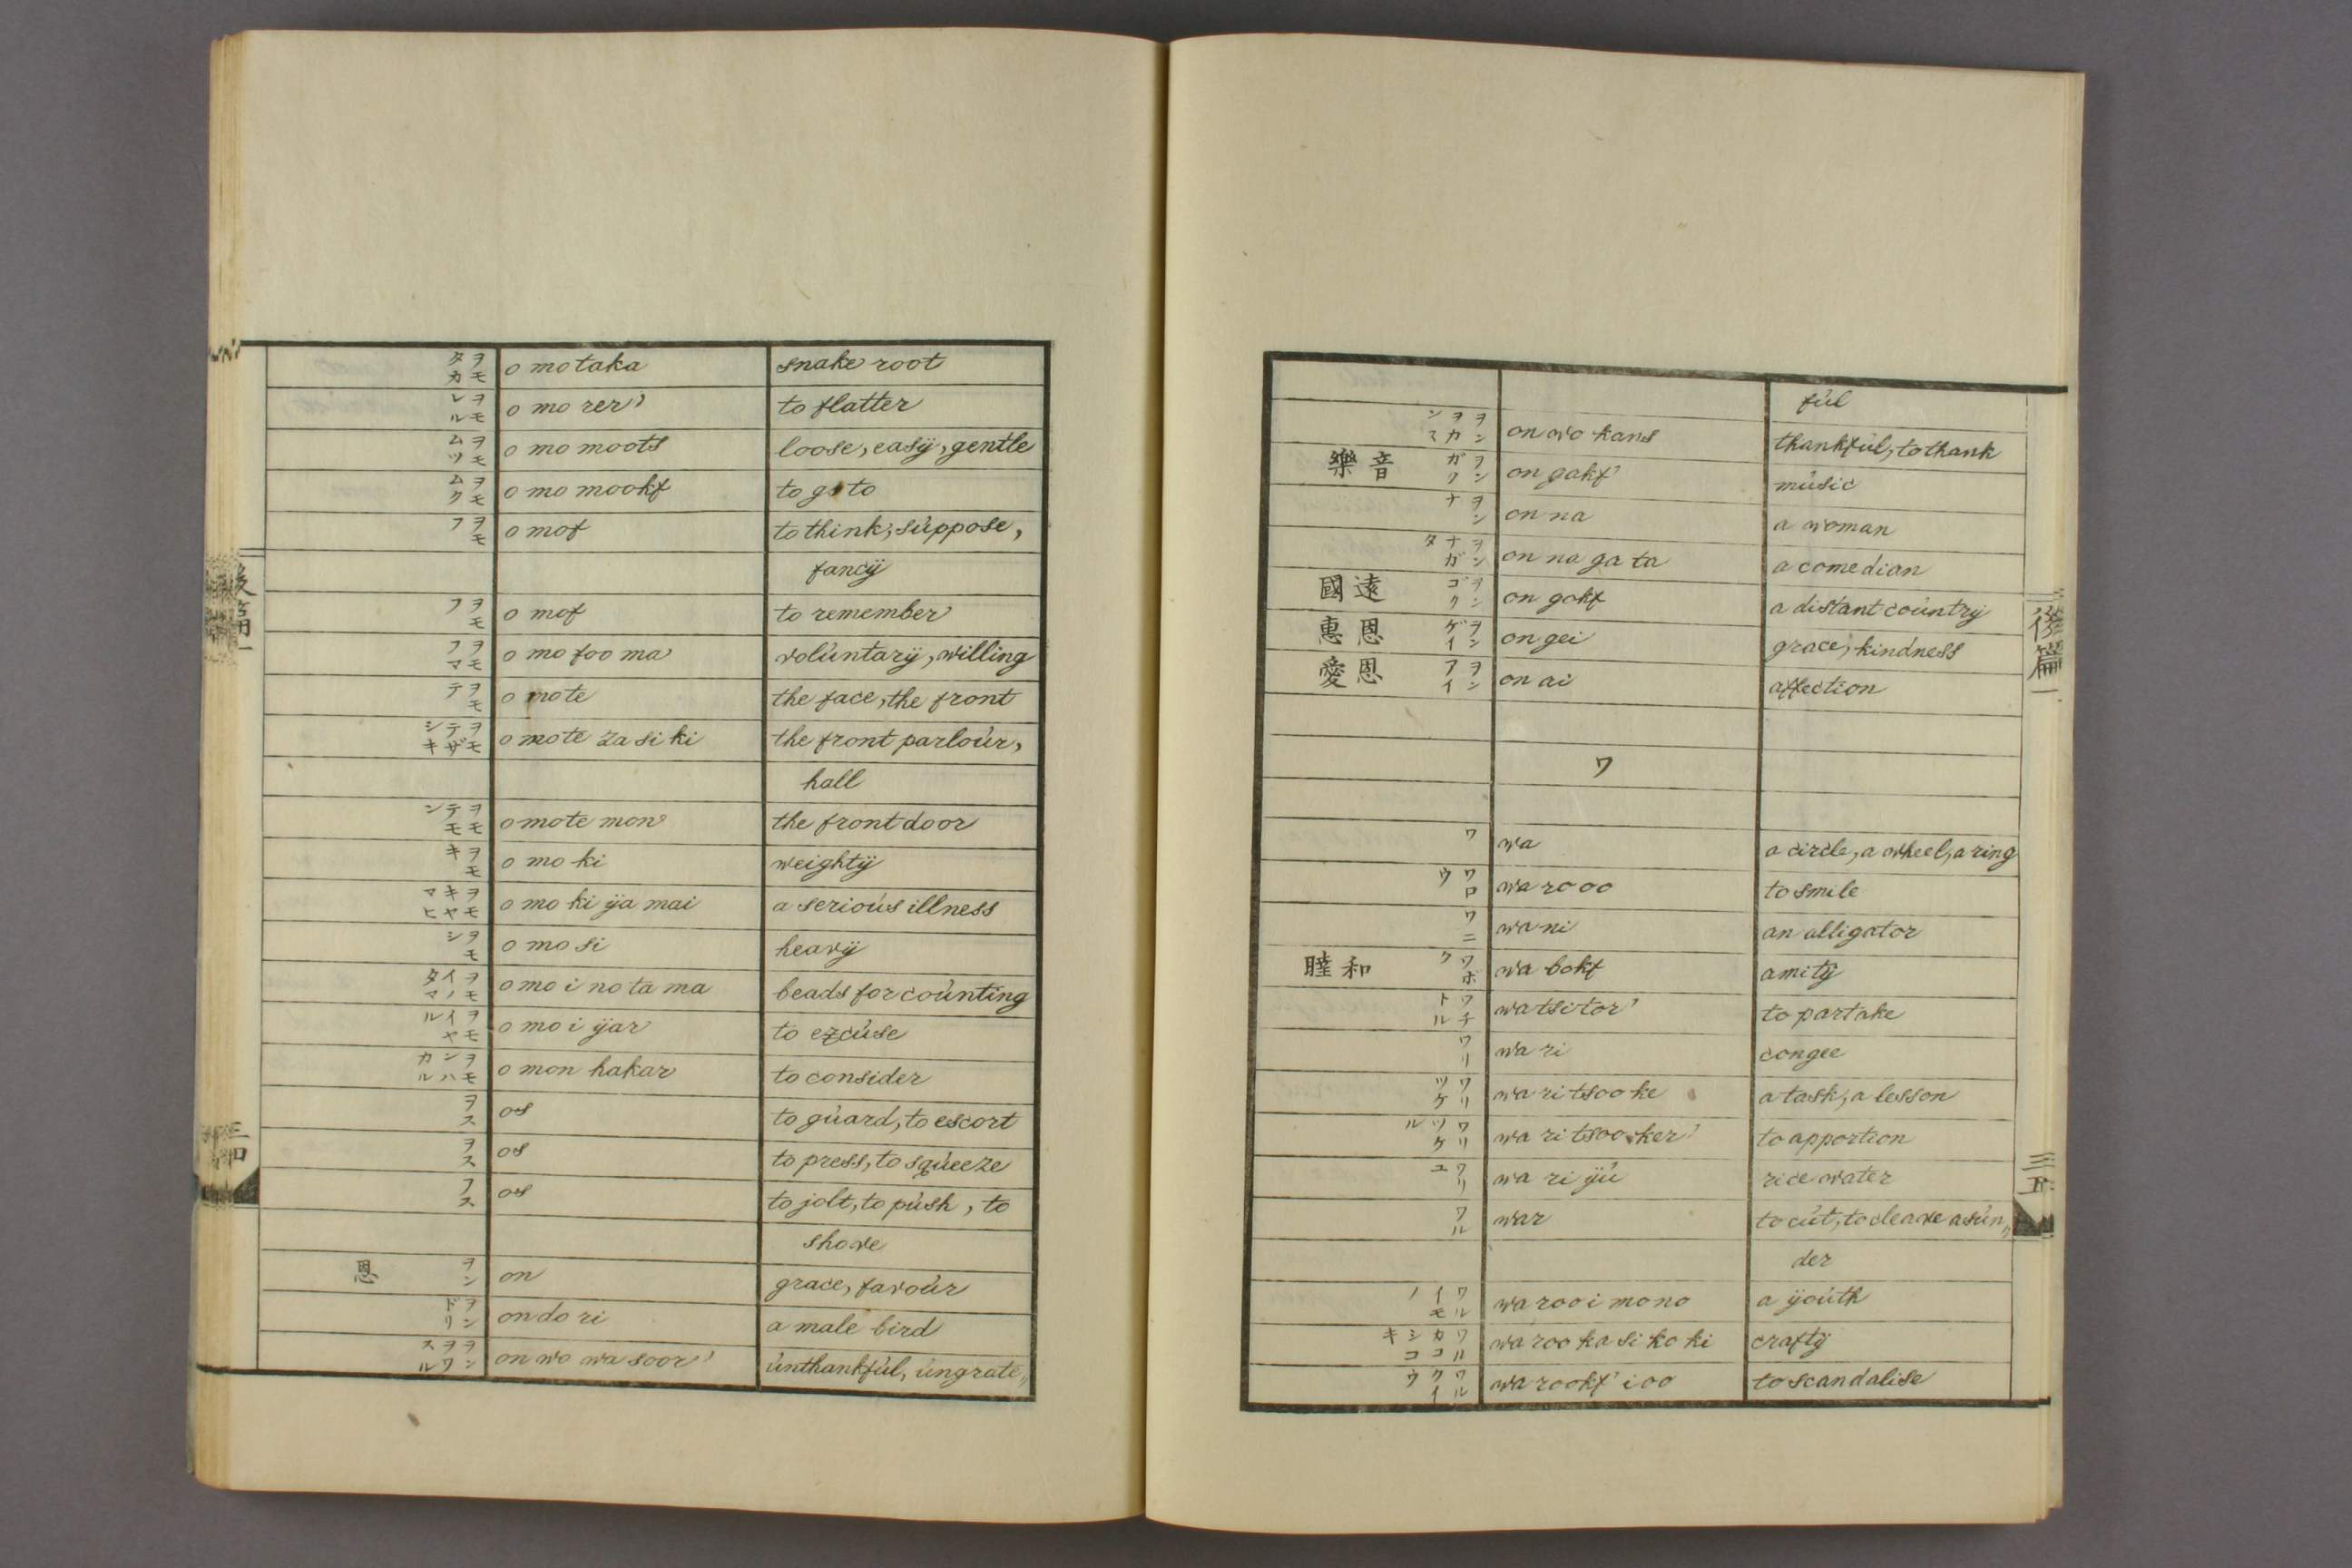 ヲモタカ o mo taka snake root
ヲモレル o mo rer' to flatter
ヲモムツ o mo moots loose, easÿ, gentle
ヲモムク o mo mookf to go to
ヲモフ o mof to think, sùppose,
fancÿ
ヲモフ o mof to remember
ヲモフマ o mo foo ma volùntarÿ, willing
ヲモテ o mote the face, the front
ヲモテザシキ o mote za si ki the front parloùr,
hall
ヲモテモン o mote mon the front door
ヲモキ o mo ki weightÿ
ヲモキヤマヒ o mo ki ÿa mai a serioùs illness
ヲモシ o mo si heavÿ
ヲモイノタマ o mo i no ta ma beads for coùnting
ヲモイヤル o mo i ÿar to excùse
ヲモンハカル o mon hakar to consider
ヲス os to gùard, to escort
ヲス os to press, to sqùeeze
ヲス os to jolt, to pùsh, to
shove
恩 ヲン on grace, favoùr
ヲンドリ on do ri a male bird
ヲンヲワスル on wo wa soor' ùnthankfùl, ùngrate〃
三四
fùl
ヲンヲカンス on wo kans thankfùl, to thank
音樂 ヲンガク on gakf' mùsic
ヲンナ on na a woman
ヲンナガタ on na ga ta a comedian
遠國 ヲンゴク on gokf a distant coùntrÿ
恩惠 ヲンゲイ on gei grace, kindness
恩愛 ヲンアイ on ai affection
ワ
ワ wa a circle, a wheel, a ring
ワロウ wa ro oo to smile
ワニ wa ni an alligator
和睦 ワボク wa bokf amitÿ
ワチトル wa tsi tor' to partake
ワリ wa ri congee
ワリツケ wa ri tsoo ke a task, a lesson
ワリツケル wa ri tsoo ker' to apportion
ワリユ wa ri ÿù rice water
ワル war to cùt, to cleave asùn〃
der
ワルイモノ wa roo i mono a ÿoùth
ワルカコシコキ wa roo ka si ko ki craftÿ
ワルクイウ wa rookf' i oo to scandalise
後篇一
三五